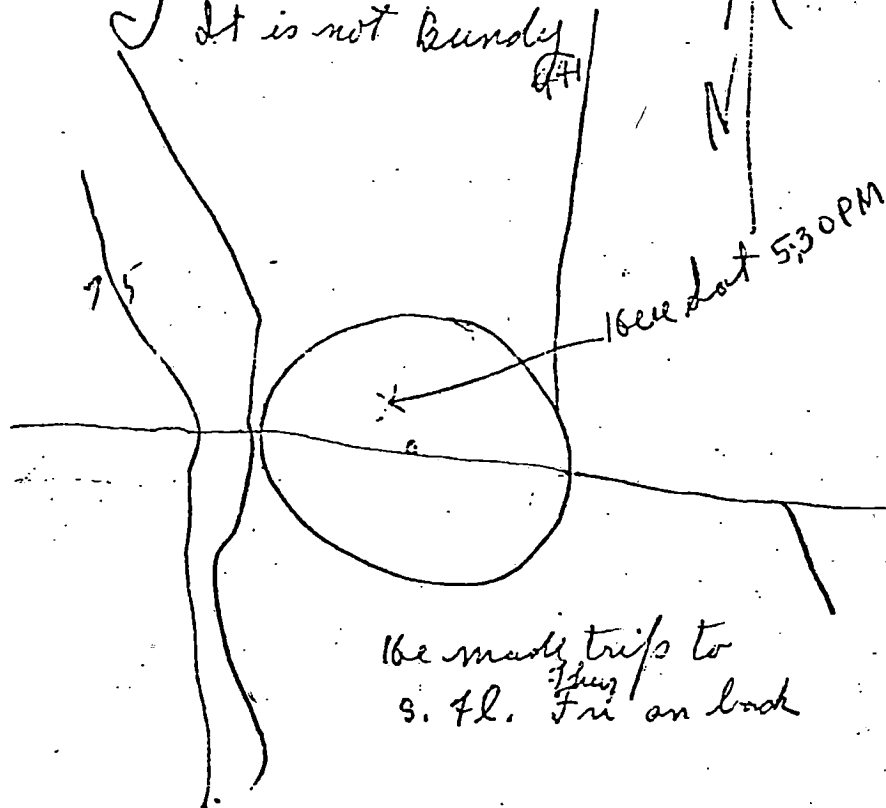 It is not Bundy
N
75
Here Sat 5:30 PM
He made trip to
Thur
S. Fl. Fri on back